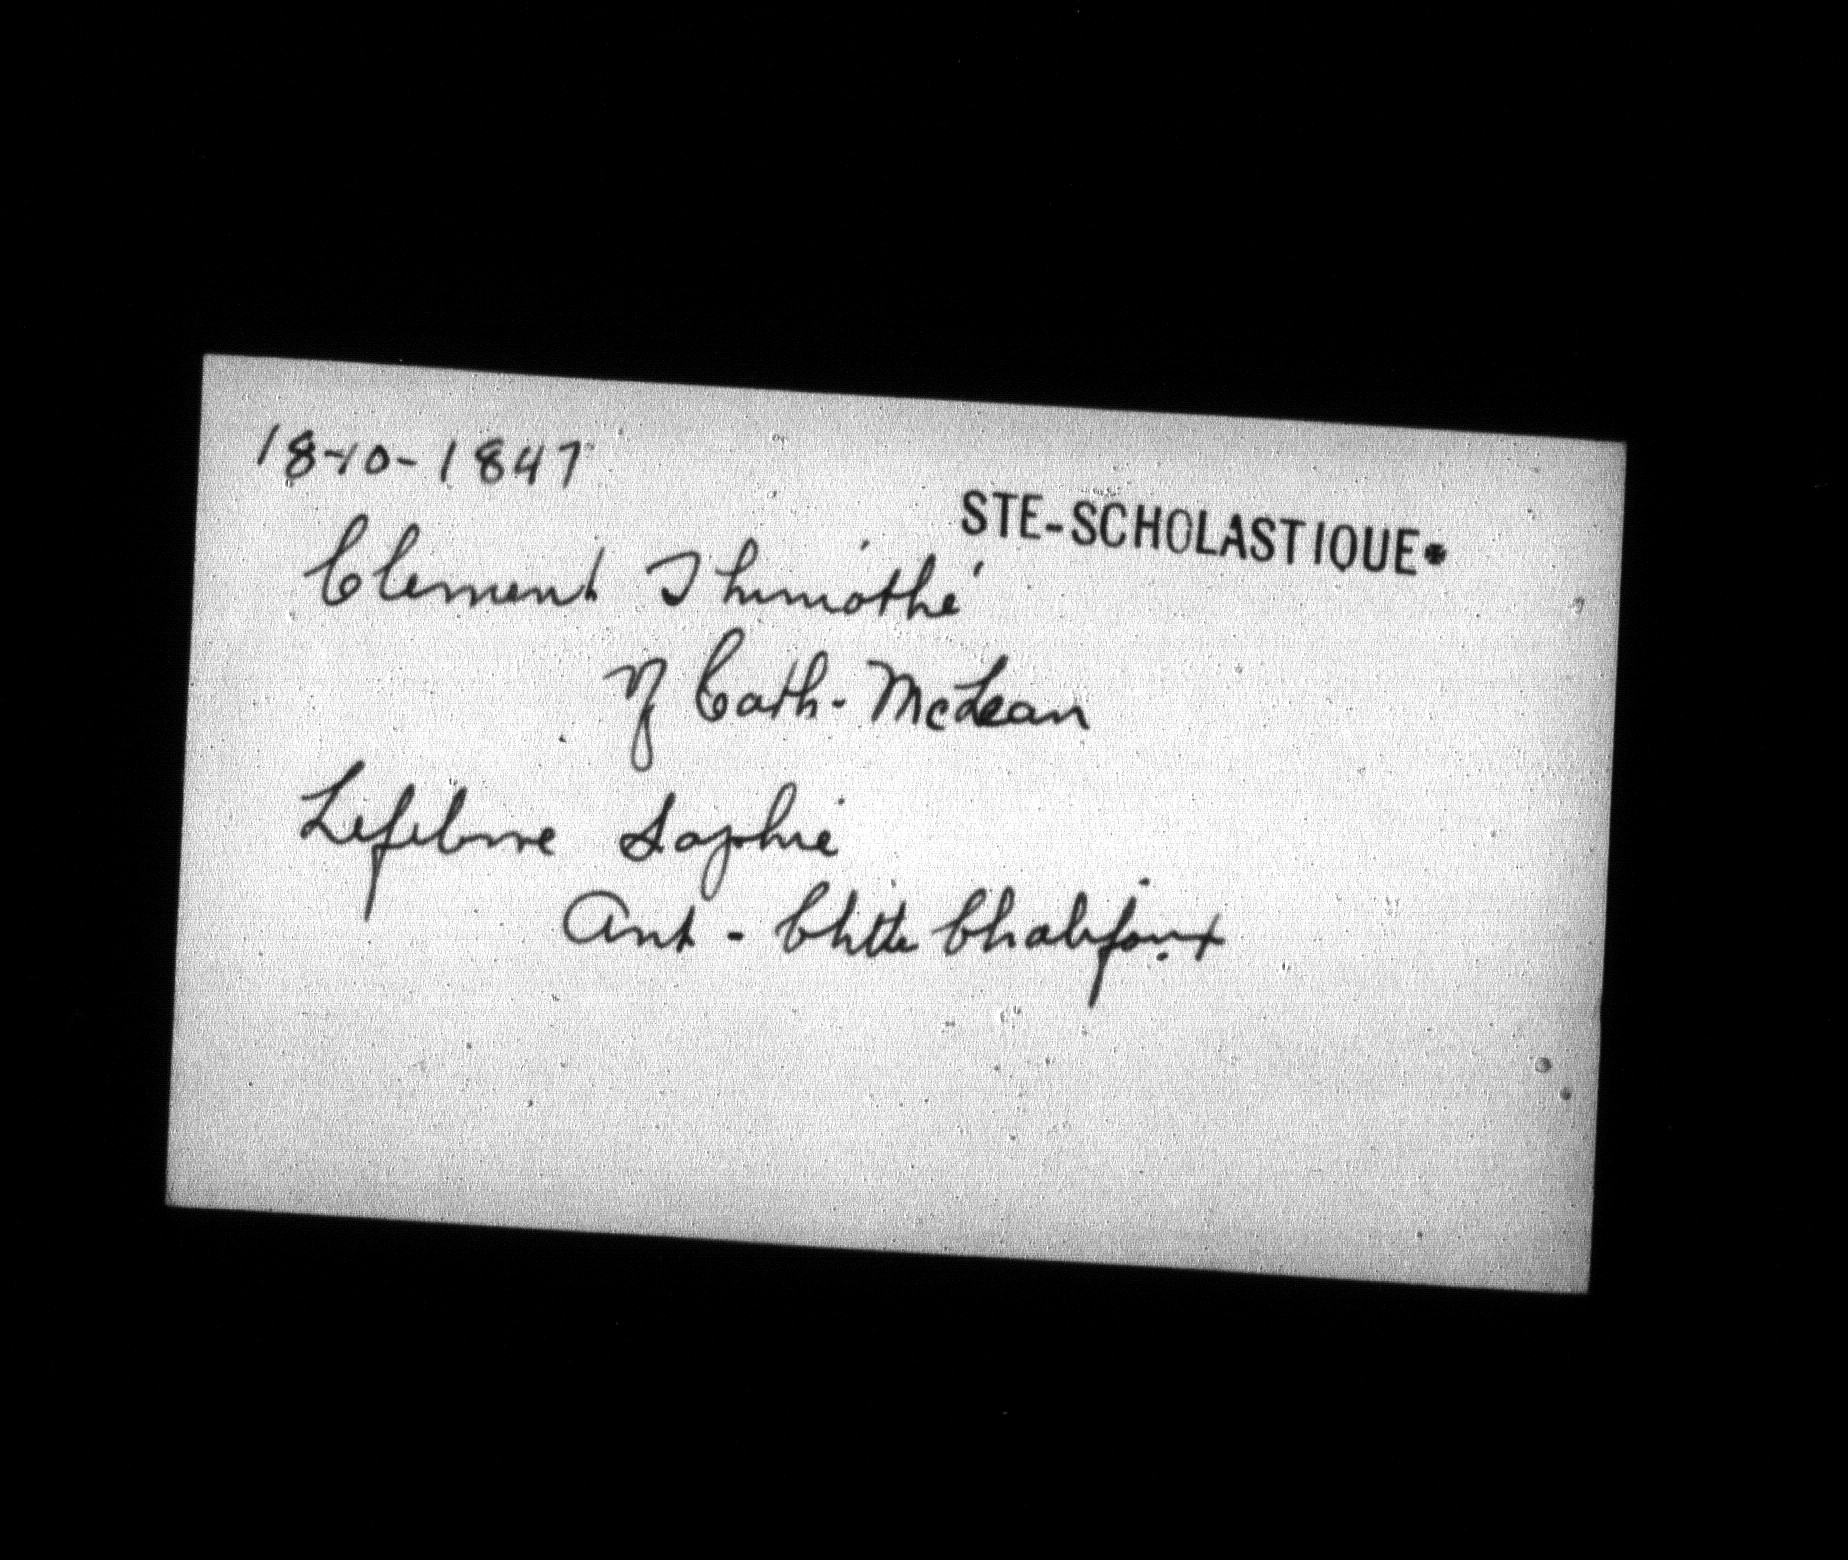 18-10-1847
STE-SCHOLASTIQUE.
Clement Thimothé
Vf Cath. McLean
Lefebvre Sophie
Ant - Chtte Chalifoux